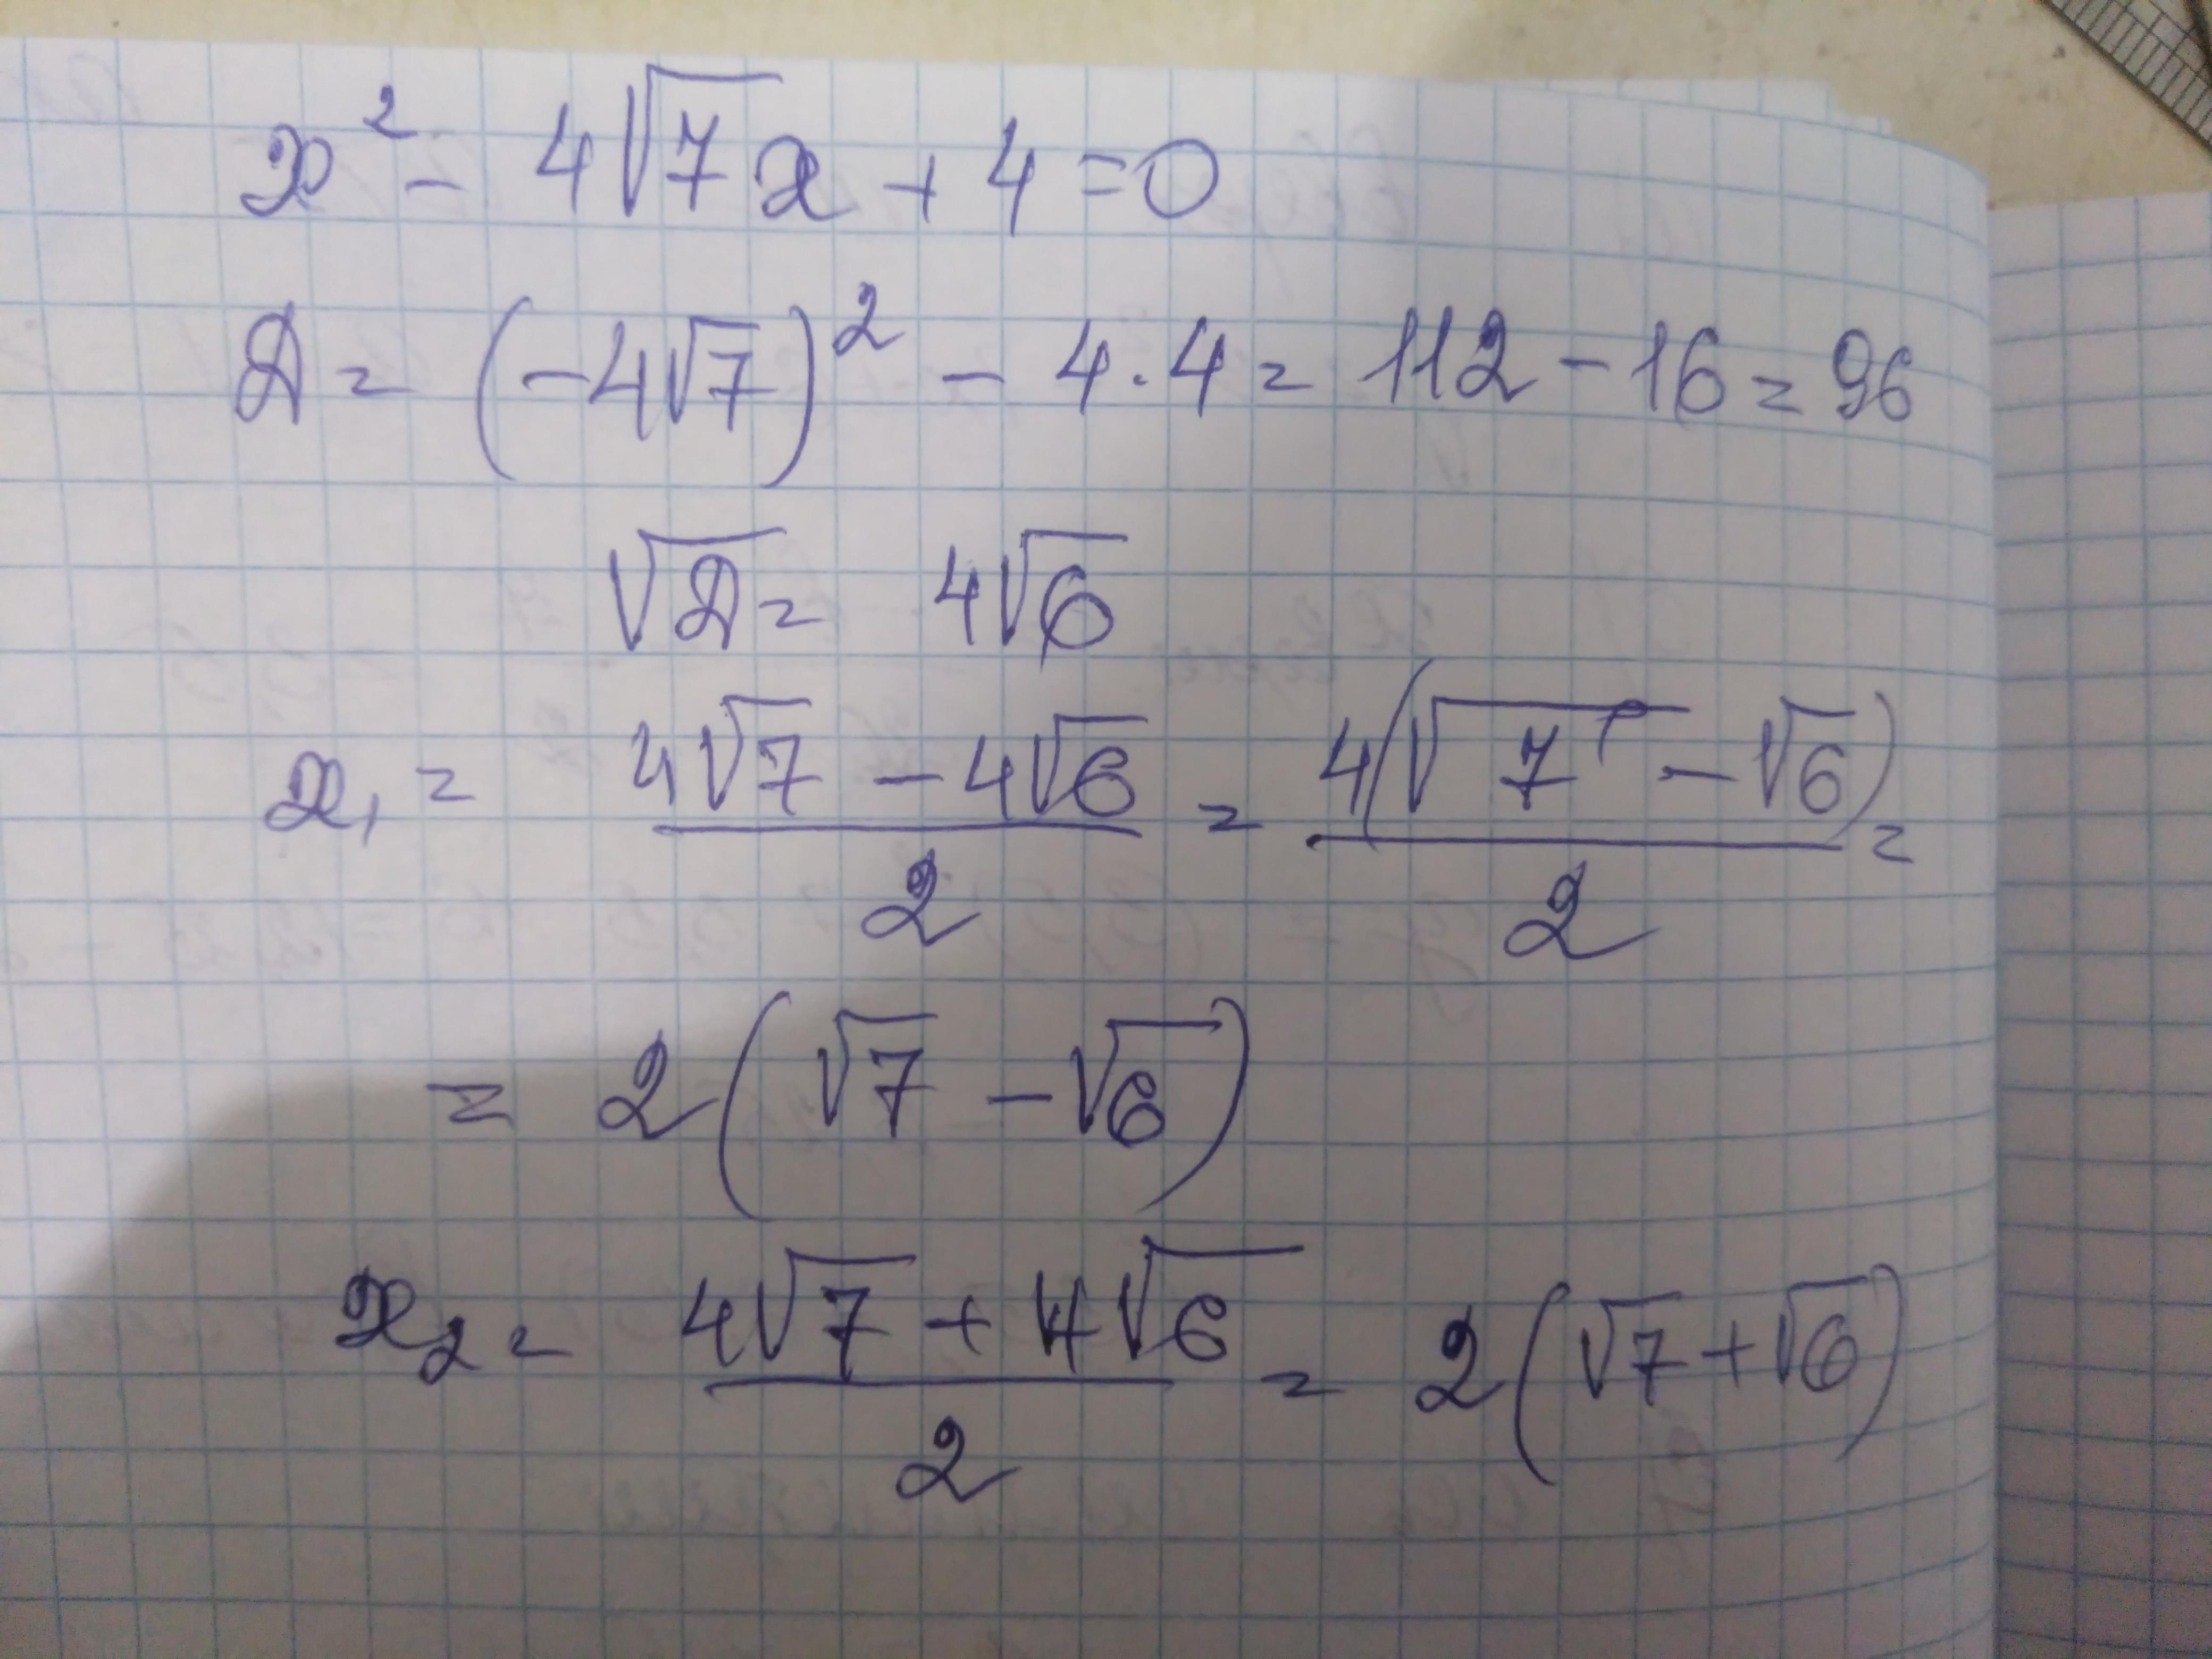 x² - 4√7x + 4 = 0
D = (-4√7)² - 4·4 = 112 - 16 = 96
√D = 4√6
x₁ = (4√7 - 4√6)/2 = 4(√7 - √6)/2 =
= 2(√7 - √6)
x₂ = (4√7 + 4√6)/2 = 2(√7 + √6)